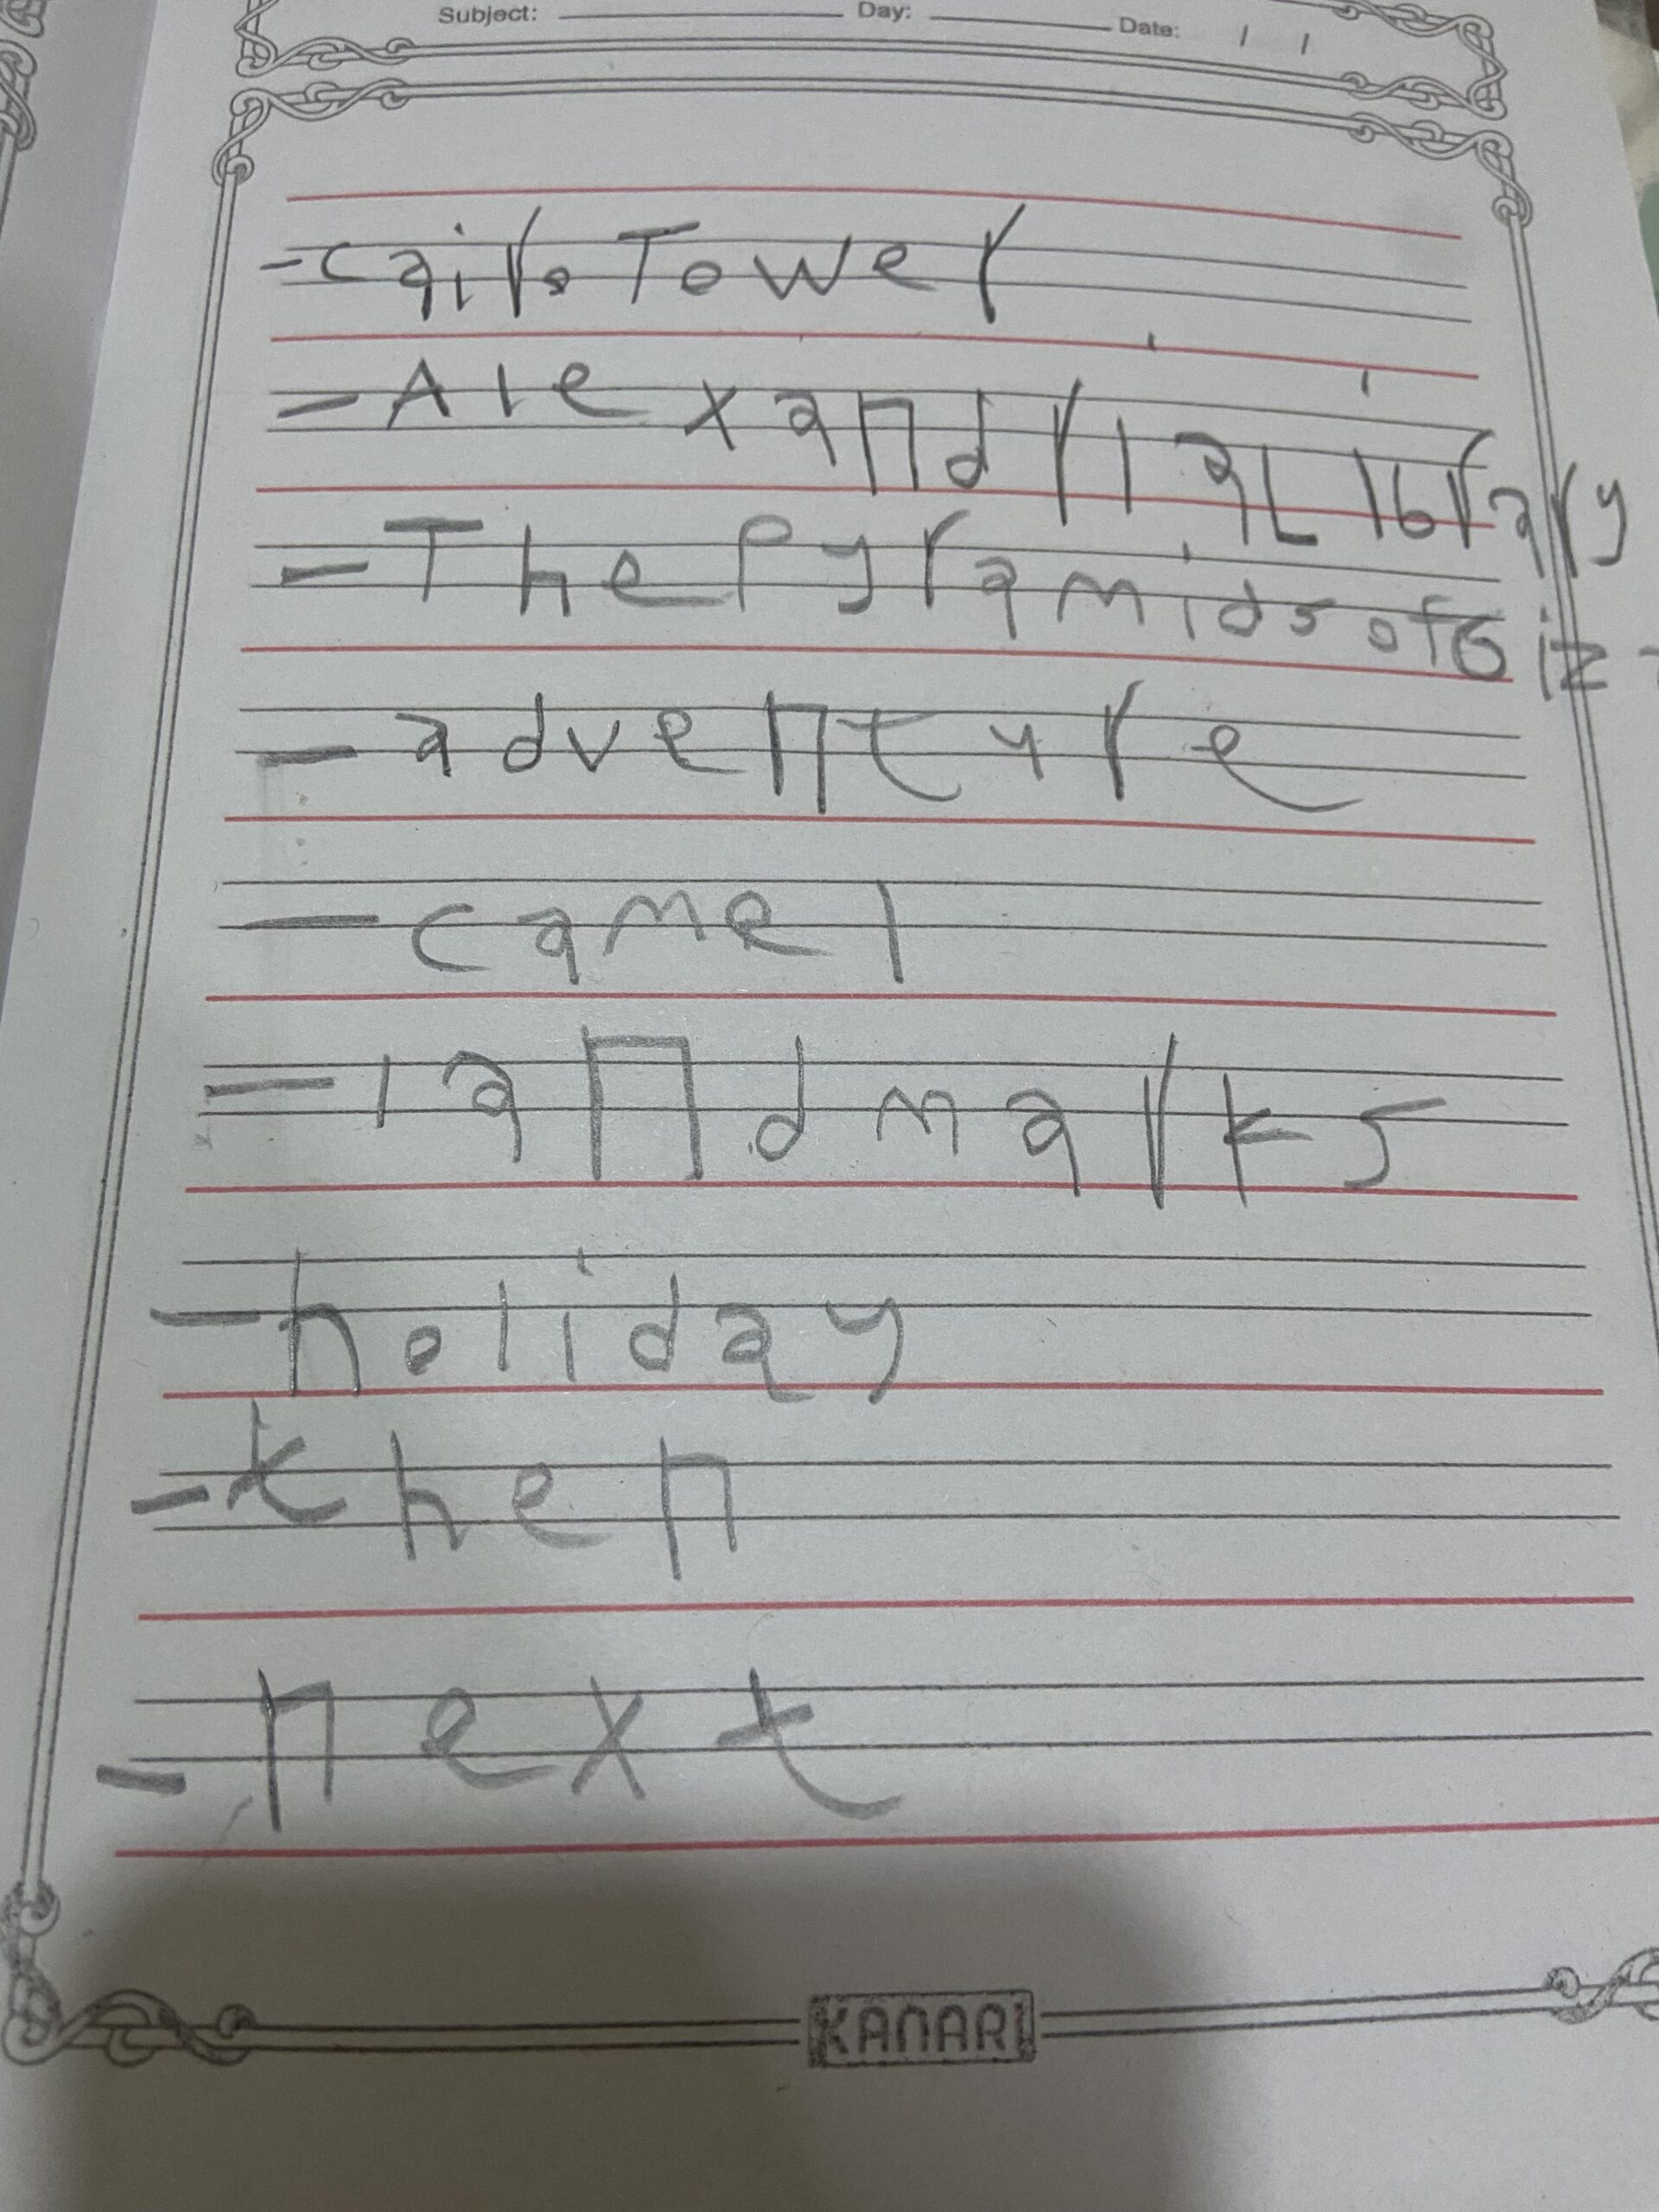 Subject: Day: Date: / /
- cairo Tower
- Alexandria Library
- The Pyramids of Giz
- adventure
- camel
- landmarks
- holiday
- then
- next
KANARI